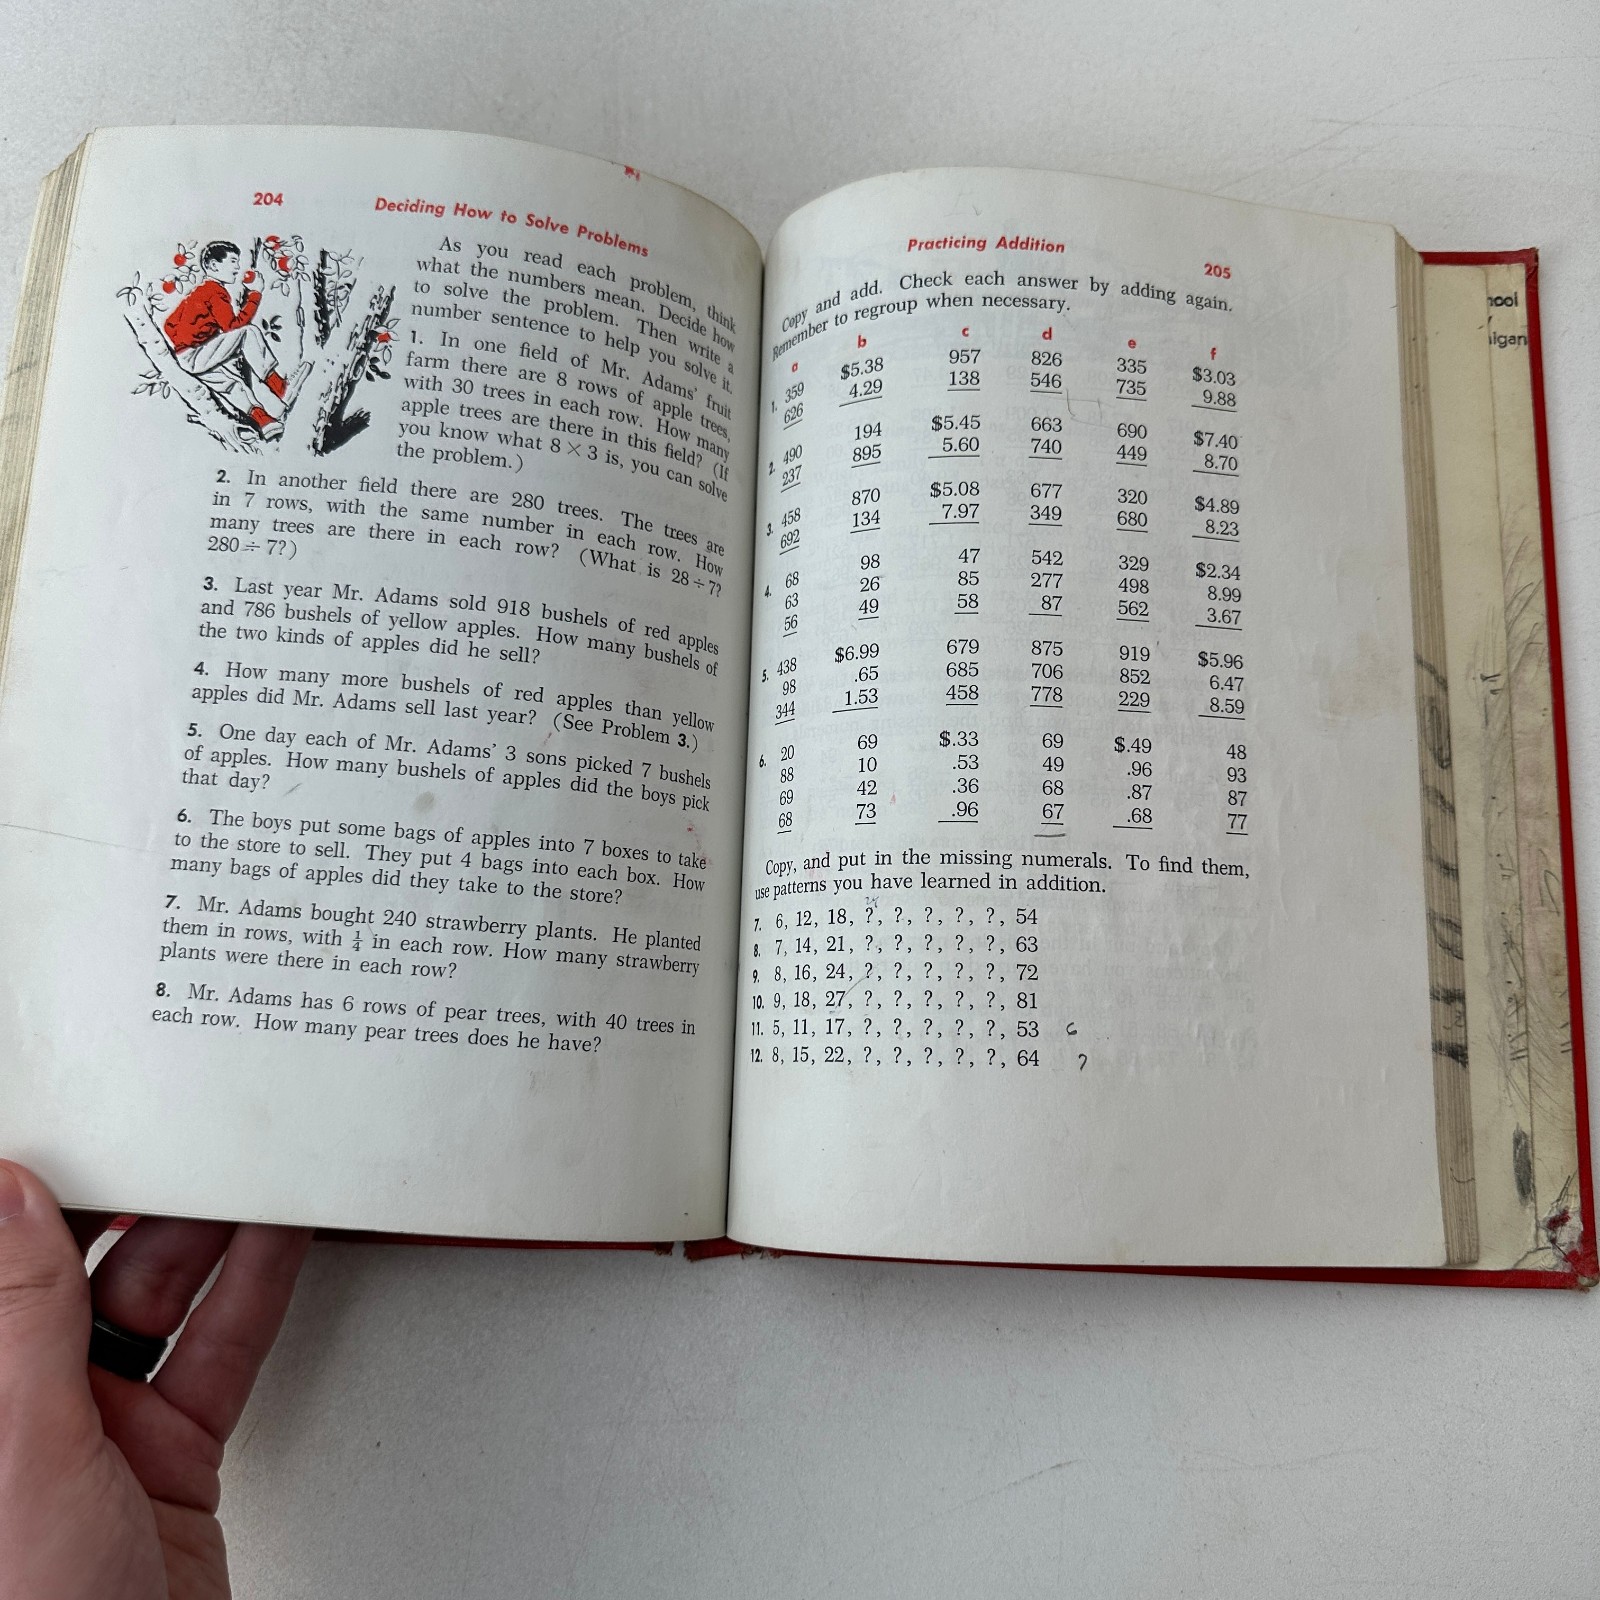 204
Deciding How to Solve Problems
As you read each problem, think
what the numbers mean. Decide how
to solve the problem. Then write a
number sentence to help you solve it.
1. In one field of Mr. Adams' fruit
farm there are 8 rows of apple trees,
with 30 trees in each row. How many
apple trees are there in this field? (If
you know what 8 × 3 is, you can solve
the problem.)
2. In another field there are 280 trees. The trees are
in 7 rows, with the same number in each row. How
many trees are there in each row? (What is 28 ÷ 7?
280 ÷ 7?)
3. Last year Mr. Adams sold 918 bushels of red apples
and 786 bushels of yellow apples. How many bushels of
the two kinds of apples did he sell?
4. How many more bushels of red apples than yellow
apples did Mr. Adams sell last year? (See Problem 3.)
5. One day each of Mr. Adams' 3 sons picked 7 bushels
of apples. How many bushels of apples did the boys pick
that day?
6. The boys put some bags of apples into 7 boxes to take
to the store to sell. They put 4 bags into each box. How
many bags of apples did they take to the store?
7. Mr. Adams bought 240 strawberry plants. He planted
them in rows, with 1/4 in each row. How many strawberry
plants were there in each row?
8. Mr. Adams has 6 rows of pear trees, with 40 trees in
each row. How many pear trees does he have?
Practicing Addition
205
Copy and add. Check each answer by adding again.
Remember to regroup when necessary.
a b c d e f
1. 359 $5.38 957 826 335 $3.03
626 4.29 138 546 735 9.88
2. 490 194 $5.45 663 690 $7.40
237 895 5.60 740 449 8.70
3. 458 870 $5.08 677 320 $4.89
692 134 7.97 349 680 8.23
4. 68 98 47 542 329 $2.34
63 26 85 277 498 8.99
56 49 58 87 562 3.67
5. 438 $6.99 679 875 919 $5.96
98 .65 685 706 852 6.47
344 1.53 458 778 229 8.59
6. 20 69 $.33 69 $.49 48
88 10 .53 49 .96 93
69 42 .36 68 .87 87
68 73 .96 67 .68 77
Copy, and put in the missing numerals. To find them,
use patterns you have learned in addition.
7. 6, 12, 18, ?, ?, ?, ?, ?, 54
8. 7, 14, 21, ?, ?, ?, ?, ?, 63
9. 8, 16, 24, ?, ?, ?, ?, ?, 72
10. 9, 18, 27, ?, ?, ?, ?, ?, 81
11. 5, 11, 17, ?, ?, ?, ?, ?, 53 6
12. 8, 15, 22, ?, ?, ?, ?, ?, 64 7